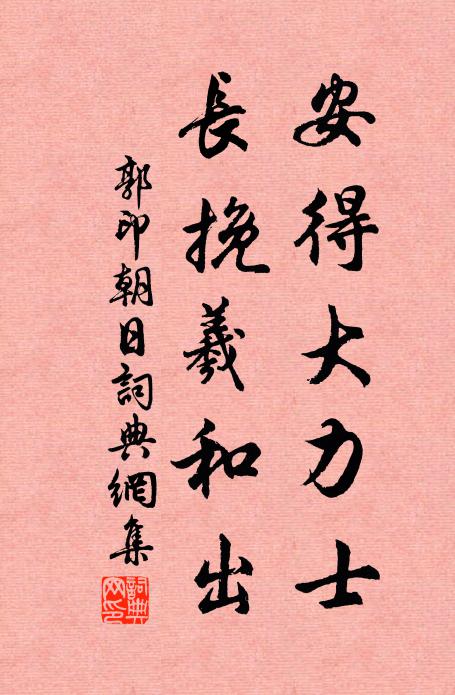 安得大力士
長挽羲和出
郭印朝日詞典網集
詞典網印